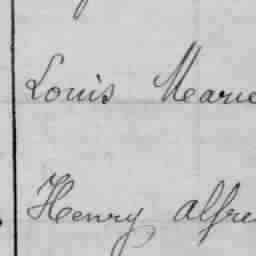 Louis Marie
Henry Alfre